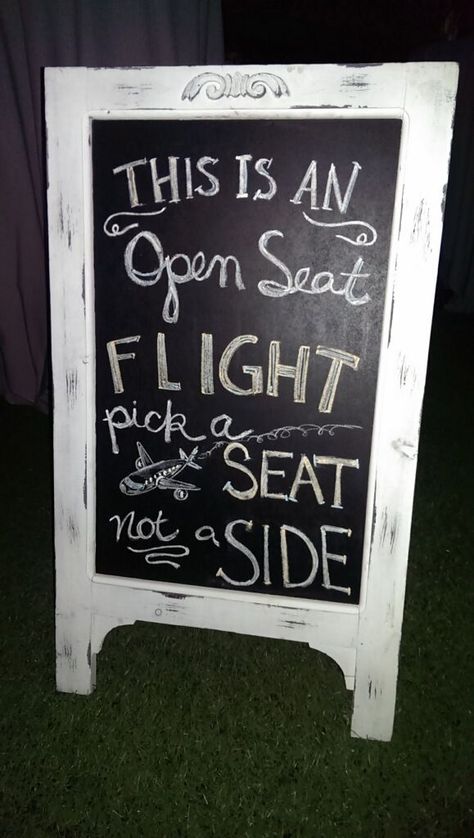 THIS IS AN
Open Seat
FLIGHT
pick a
SEAT
not a SIDE